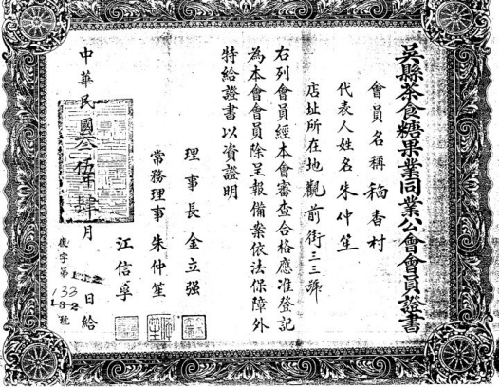 吳縣茶食糖果業同業公會會員證書
會員名稱 稻香村
代表人姓名 朱仲笙
店址所在地 觀前街三三號
右列會員經本會審查合格應准登記
為本會會員除呈報備案依法保障外
特給證書以資證明
理事長 金立强
常務理事 朱仲笙
江信孚
中華民國叁伍年肆月 日給
字第 號